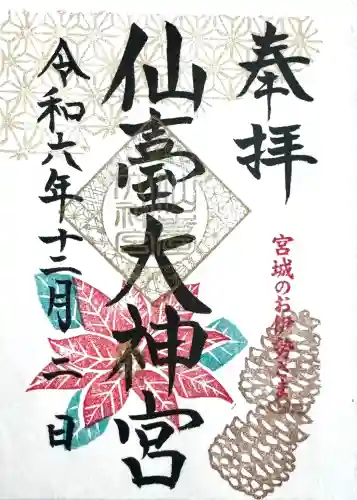 奉拝
宮城のお伊勢さま
仙臺大神宮
令和六年十二月二日